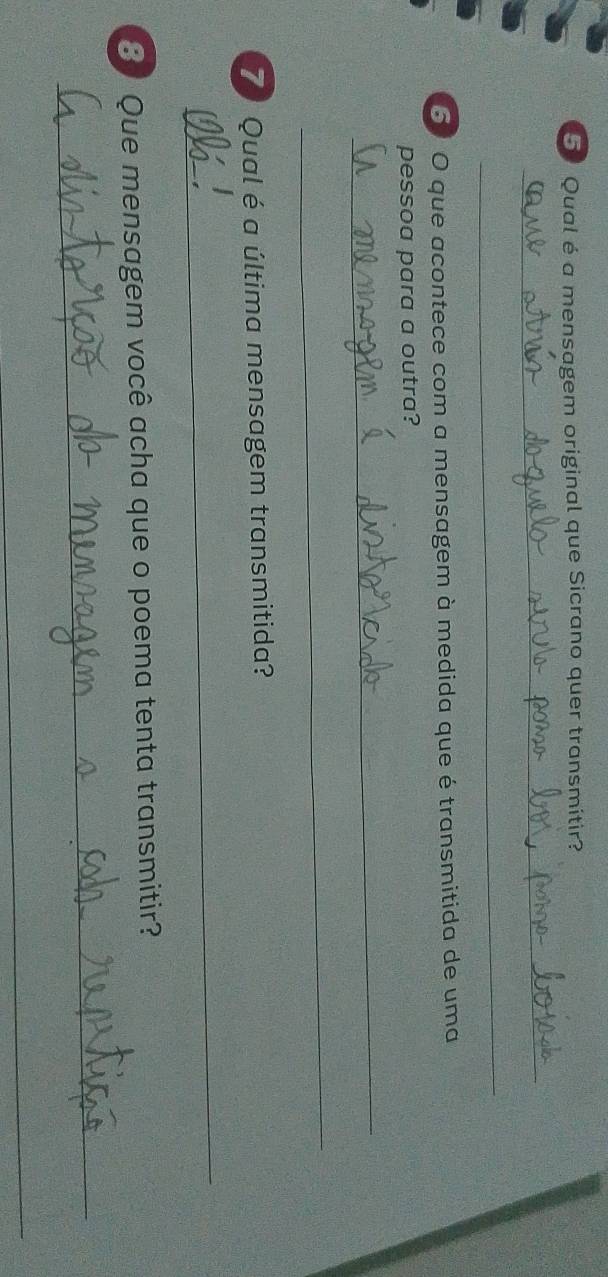 5 Qual é a mensagem original que Sicrano quer transmitir?
que atrás daquela serra passa boi, passa boiada
6 O que acontece com a mensagem à medida que é transmitida de uma
pessoa para a outra?
A mensagem é distorcida
7 Qual é a última mensagem transmitida?
Olá!
8 Que mensagem você acha que o poema tenta transmitir?
A distorção da mensagem a cada repetição